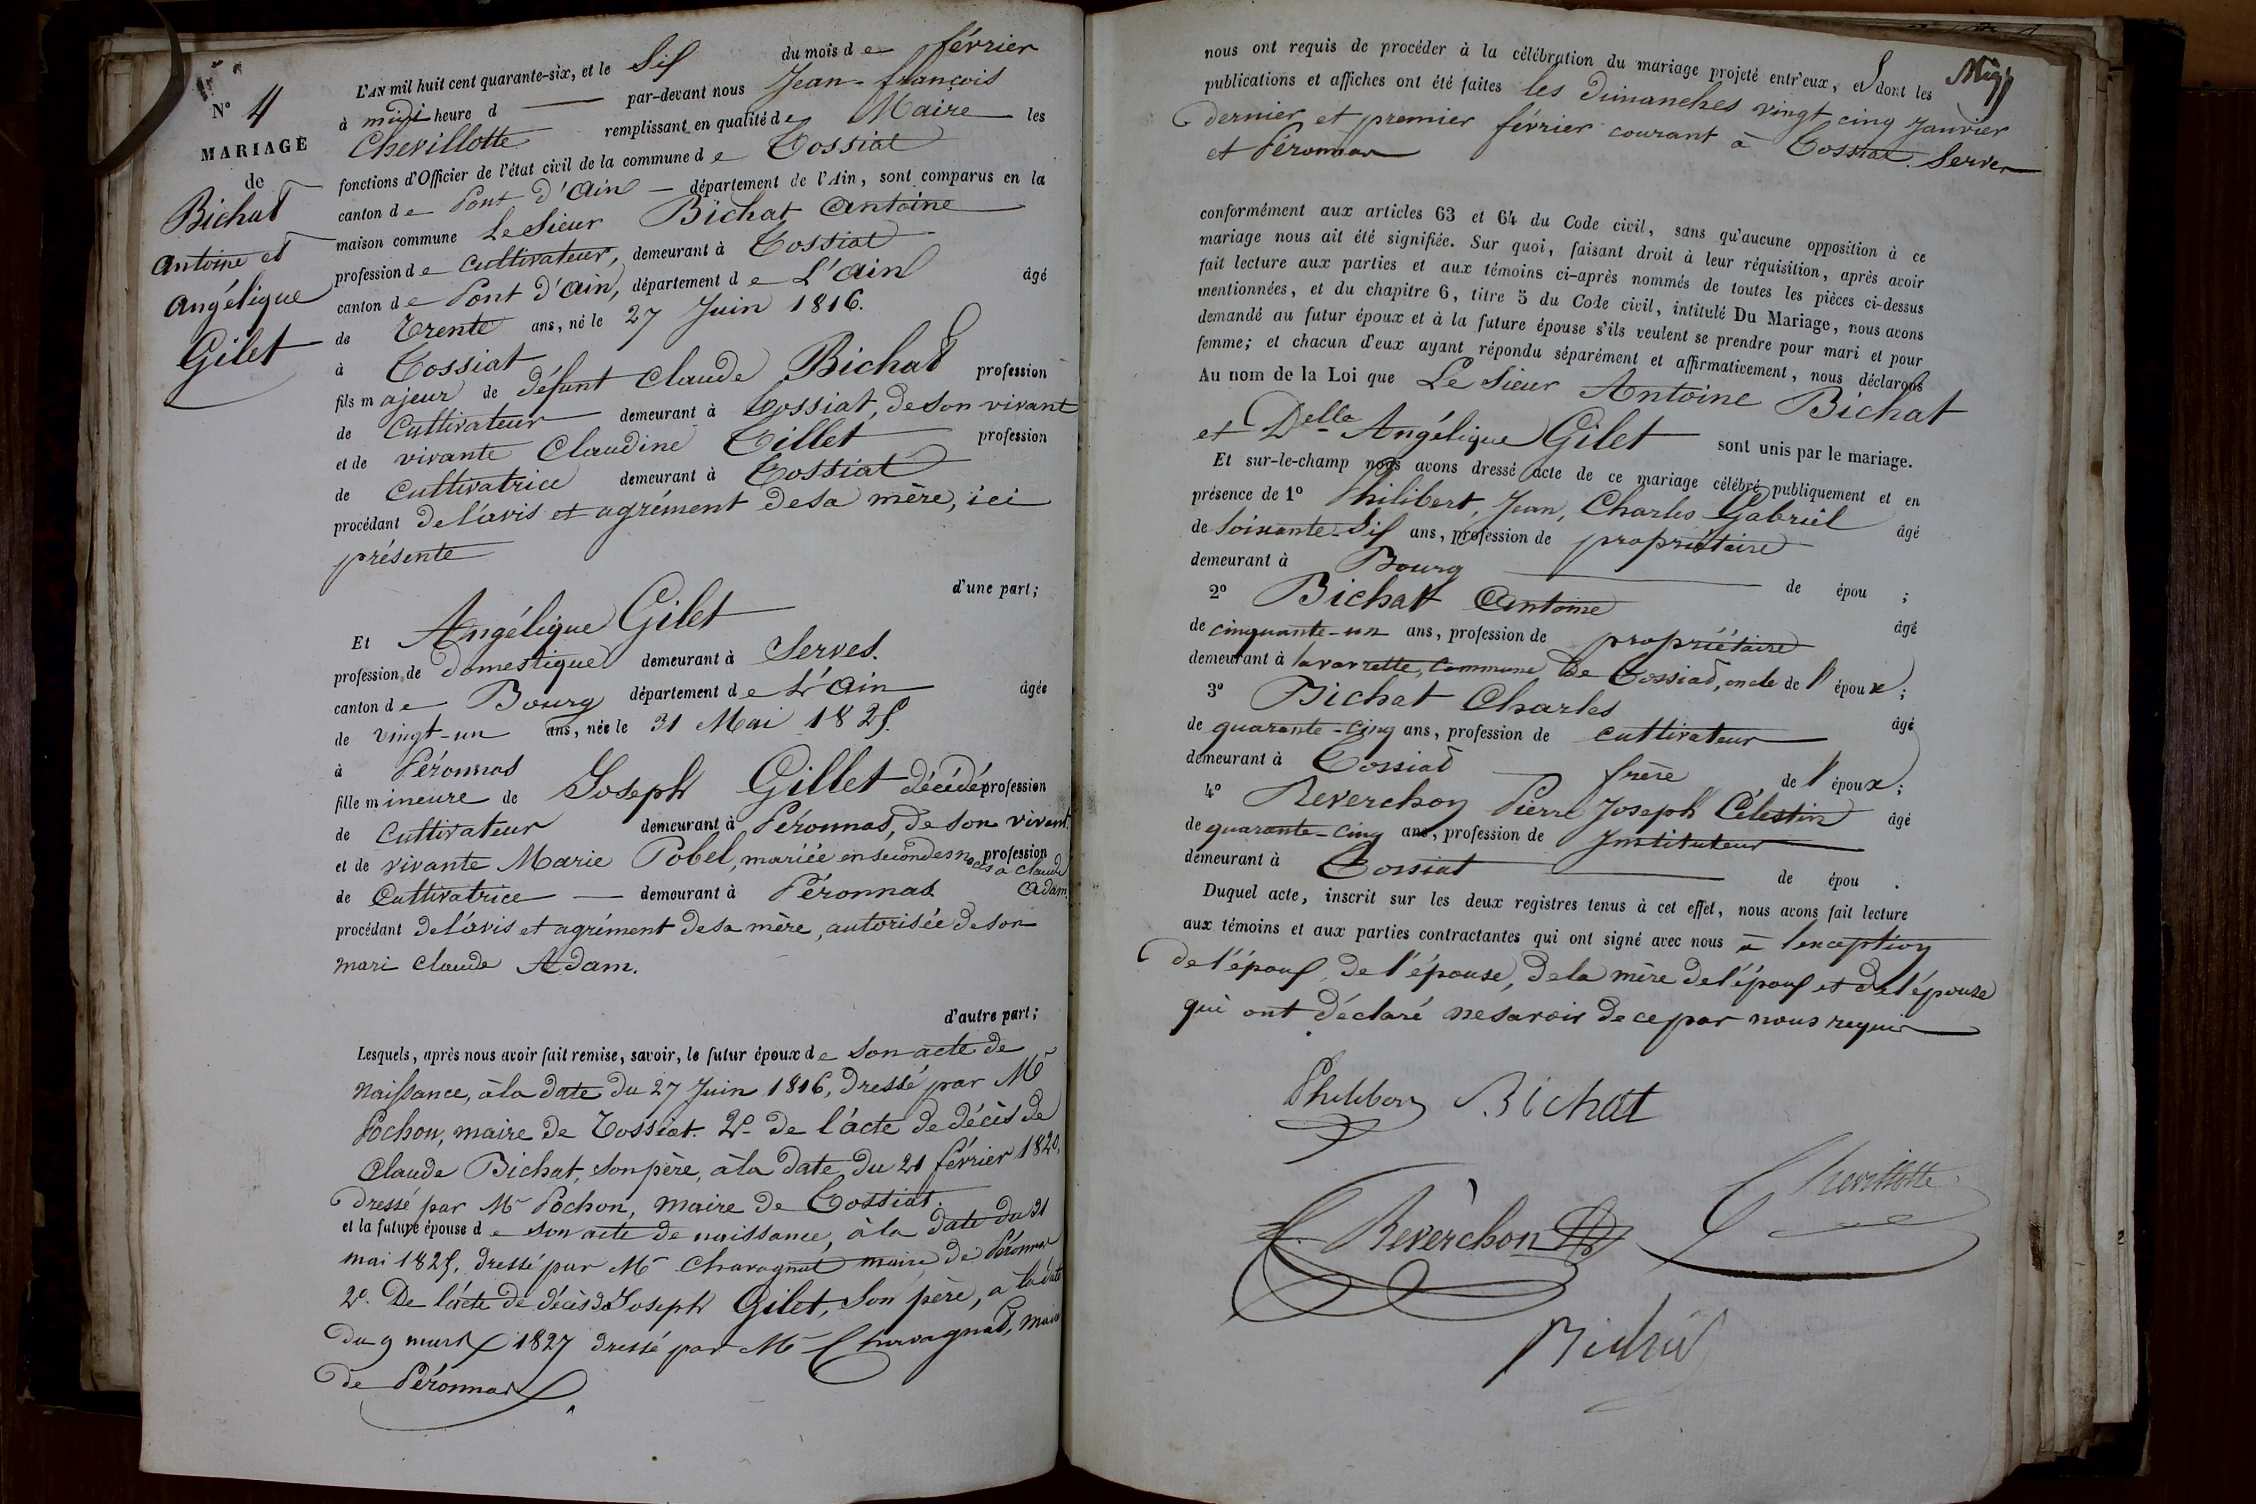 N° 4
MARIAGE
de
Bichat
Antoine et
Angélique
Gilet
L'AN mil huit cent quarante-six, et le Six du mois de février
à midi heure d par-devant nous Jean-françois
Chevillotte remplissant en qualité de Maire les
fonctions d'Officier de l'état civil de la commune de Tossiat
canton de Pont d'Ain département de l'Ain, sont comparus en la
maison commune Le Sieur Bichat Antoine
profession de cultivateur, demeurant à Tossiat
canton de Pont d'Ain, département de L'Ain âgé
de Trente ans, né le 27 Juin 1816.
à Tossiat
fils majeur de défunt Claude Bichat profession
de Cultivateur demeurant à Tossiat, de son vivant
et de vivante Claudine Tillet profession
de Cultivatrice demeurant à Tossiat
procédant de l'avis et agrément de sa mère, ici
présente
d'une part;
Et Angélique Gilet
profession de domestique demeurant à Servas.
canton de Bourg département de L'Ain âgée
de vingt-un ans, née le 31 Mai 1825.
à Péronnas
fille mineure de Joseph Gillet décédé profession
de Cultivateur demeurant à Péronnas, de son vivant
et de vivante Marie Pobel, mariée en secondes noces à Claude profession
Adam.
de Cultivatrice demeurant à Péronnas
procédant de l'avis et agrément de sa mère, autorisée de son
mari Claude Adam.
d'autre part;
Lesquels, après nous avoir fait remise, savoir, le futur époux de son acte de
naissance, à la date du 27 Juin 1816, dressé par Mr
Pochon, maire de Tossiat. 2° de l'acte de décès de
Claude Bichat, son père, à la date du 21 février 1820,
dressé par Mr Pochon, maire de Tossiat.
et la future épouse de son acte de naissance, à la date du 31
mai 1825, dressé par Mr Chavagnat maire de Péronnas
2° De l'acte de décès de Joseph Gilet, son père, a la date
du 9 mars 1827 dressé par Mr Chavagnat, maire
de Péronnas
nous ont requis de procéder à la célébration du mariage projeté entr'eux, et dont les
publications et affiches ont été faites les dimanches vingt cinq Janvier
dernier et premier février courant à Tossiat. Servas
et Péronnas
conformément aux articles 63 et 64 du Code civil, sans qu'aucune opposition à ce
mariage nous ait été signifiée. Sur quoi, faisant droit à leur réquisition, après avoir
fait lecture aux parties et aux témoins ci-après nommés de toutes les pièces ci-dessus
mentionnées, et du chapitre 6, titre 5 du Code civil, intitulé Du Mariage, nous avons
demandé au futur époux et à la future épouse s'ils veulent se prendre pour mari et pour
femme; et chacun d'eux ayant répondu séparément et affirmativement, nous déclarons
Au nom de la Loi que Le Sieur Antoine Bichat
et Delle Angélique Gilet sont unis par le mariage.
Et sur-le-champ nous avons dressé acte de ce mariage célébré publiquement et en
présence de 1° Philibert, Jean, Charles Gabriel âgé
de soixante-Six ans, profession de propriétaire
demeurant à Bourg de épou ;
2° Bichat Antoine âgé
de cinquante-un ans, profession de propriétaire
demeurant à commune de Tossiat, oncle de l'époux ;
3° Bichat Charles âgé
de quarante-cinq ans, profession de cultivateur
demeurant à Tossiat frère de l'époux ;
4° Reverchon Pierre Joseph Célestin âgé
de quarante-cinq ans, profession de Instituteur
demeurant à Tossiat de épou .
Duquel acte, inscrit sur les deux registres tenus à cet effet, nous avons fait lecture
aux témoins et aux parties contractantes qui ont signé avec nous à l'exception
de l'époux, de l'épouse, de la mère de l'époux et de l'épouse
qui ont déclaré ne savoir de ce par nous requis
Philibert Bichat
Chevillotte
Reverchon
Bichat